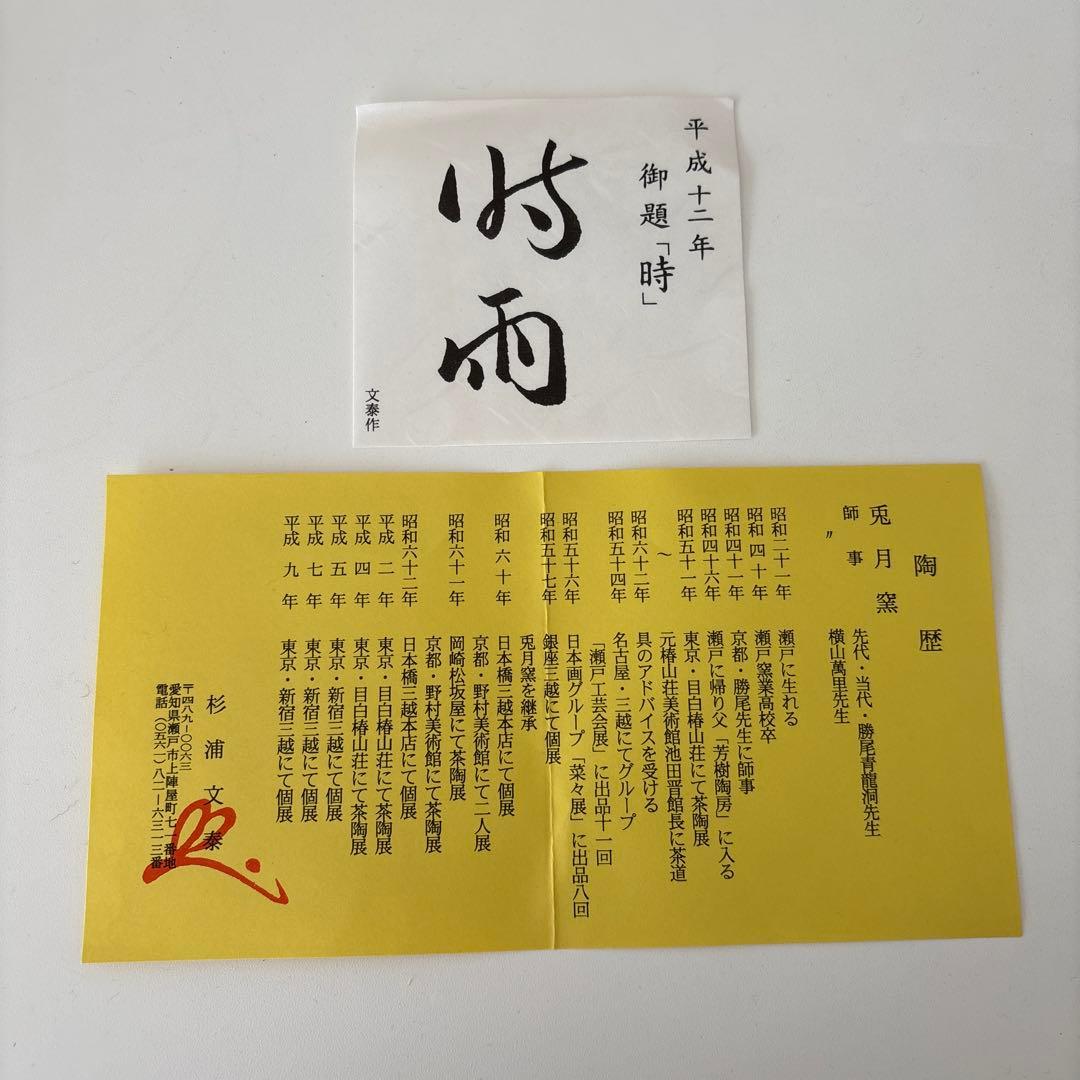 平成十二年
御題「時」
時雨
文泰作
陶歴
兎月窯
師事 先代・当代・勝尾青龍洞先生
〃 横山萬里先生
昭和二十一年 瀬戸に生れる
昭和四十年 瀬戸窯業高校卒
昭和四十一年 京都・勝尾先生に師事
昭和四十六年 瀬戸に帰り父「芳樹陶房」に入る
昭和五十一年 東京・目白椿山荘にて茶陶展
〜 元椿山荘美術館池田晋館長に茶道
昭和六十二年 具のアドバイスを受ける
昭和五十四年 名古屋・三越にてグループ
「瀬戸工芸会展」に出品十一回
昭和五十六年 日本画グループ「菜々展」に出品八回
昭和五十七年 銀座三越にて個展
兎月窯を継承
昭和六十年 日本橋三越本店にて個展
京都・野村美術館にて二人展
昭和六十一年 岡崎松坂屋にて茶陶展
京都・野村美術館にて茶陶展
昭和六十二年 日本橋三越本店にて個展
平成二年 東京・目白椿山荘にて茶陶展
平成四年 東京・目白椿山荘にて茶陶展
平成五年 東京・新宿三越にて個展
平成七年 東京・新宿三越にて個展
平成九年 東京・新宿三越にて個展
杉浦文泰
〒四八九―〇〇六三
愛知県瀬戸市上陣屋町七一番地
電話(〇五六一)八二―六三一三番